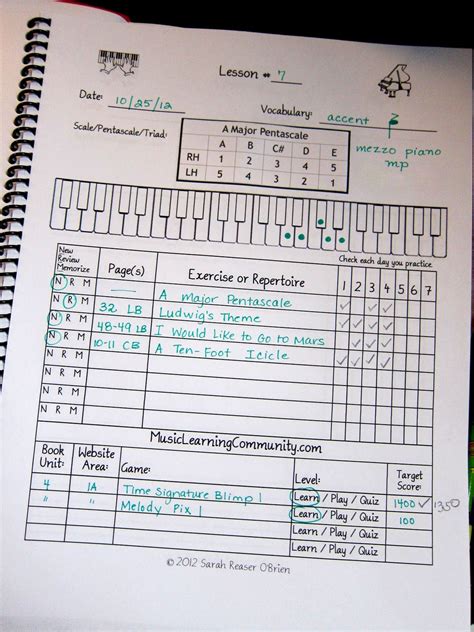 Lesson # 7
Date: 10/25/12
Vocabulary: accent
mezzo piano
mp
Scale/Pentascale/Triad:
A Major Pentascale
A B C# D E
RH 1 2 3 4 5
LH 5 4 3 2 1
Check each day you practice
New
Review
Memorize
Page(s) Exercise or Repertoire 1 2 3 4 5 6 7
N R M A Major Pentascale ✓ ✓ ✓ ✓
N R M 32 LB Ludwig's Theme ✓ ✓ ✓ ✓
N R M 48-49 LB I Would Like to Go to Mars ✓ ✓ ✓ ✓
N R M 10-11 CB A Ten-Foot Icicle ✓ ✓ ✓ ✓
N R M
N R M
N R M
MusicLearningCommunity.com
Book Unit: Website Area: Game: Level: Target Score:
4 1A Time Signature Blimp 1 Learn / Play / Quiz 1400 ✓ 1350
" " Melody Pix 1 Learn / Play / Quiz 100
Learn / Play / Quiz
Learn / Play / Quiz
© 2012 Sarah Reaser O'Brien